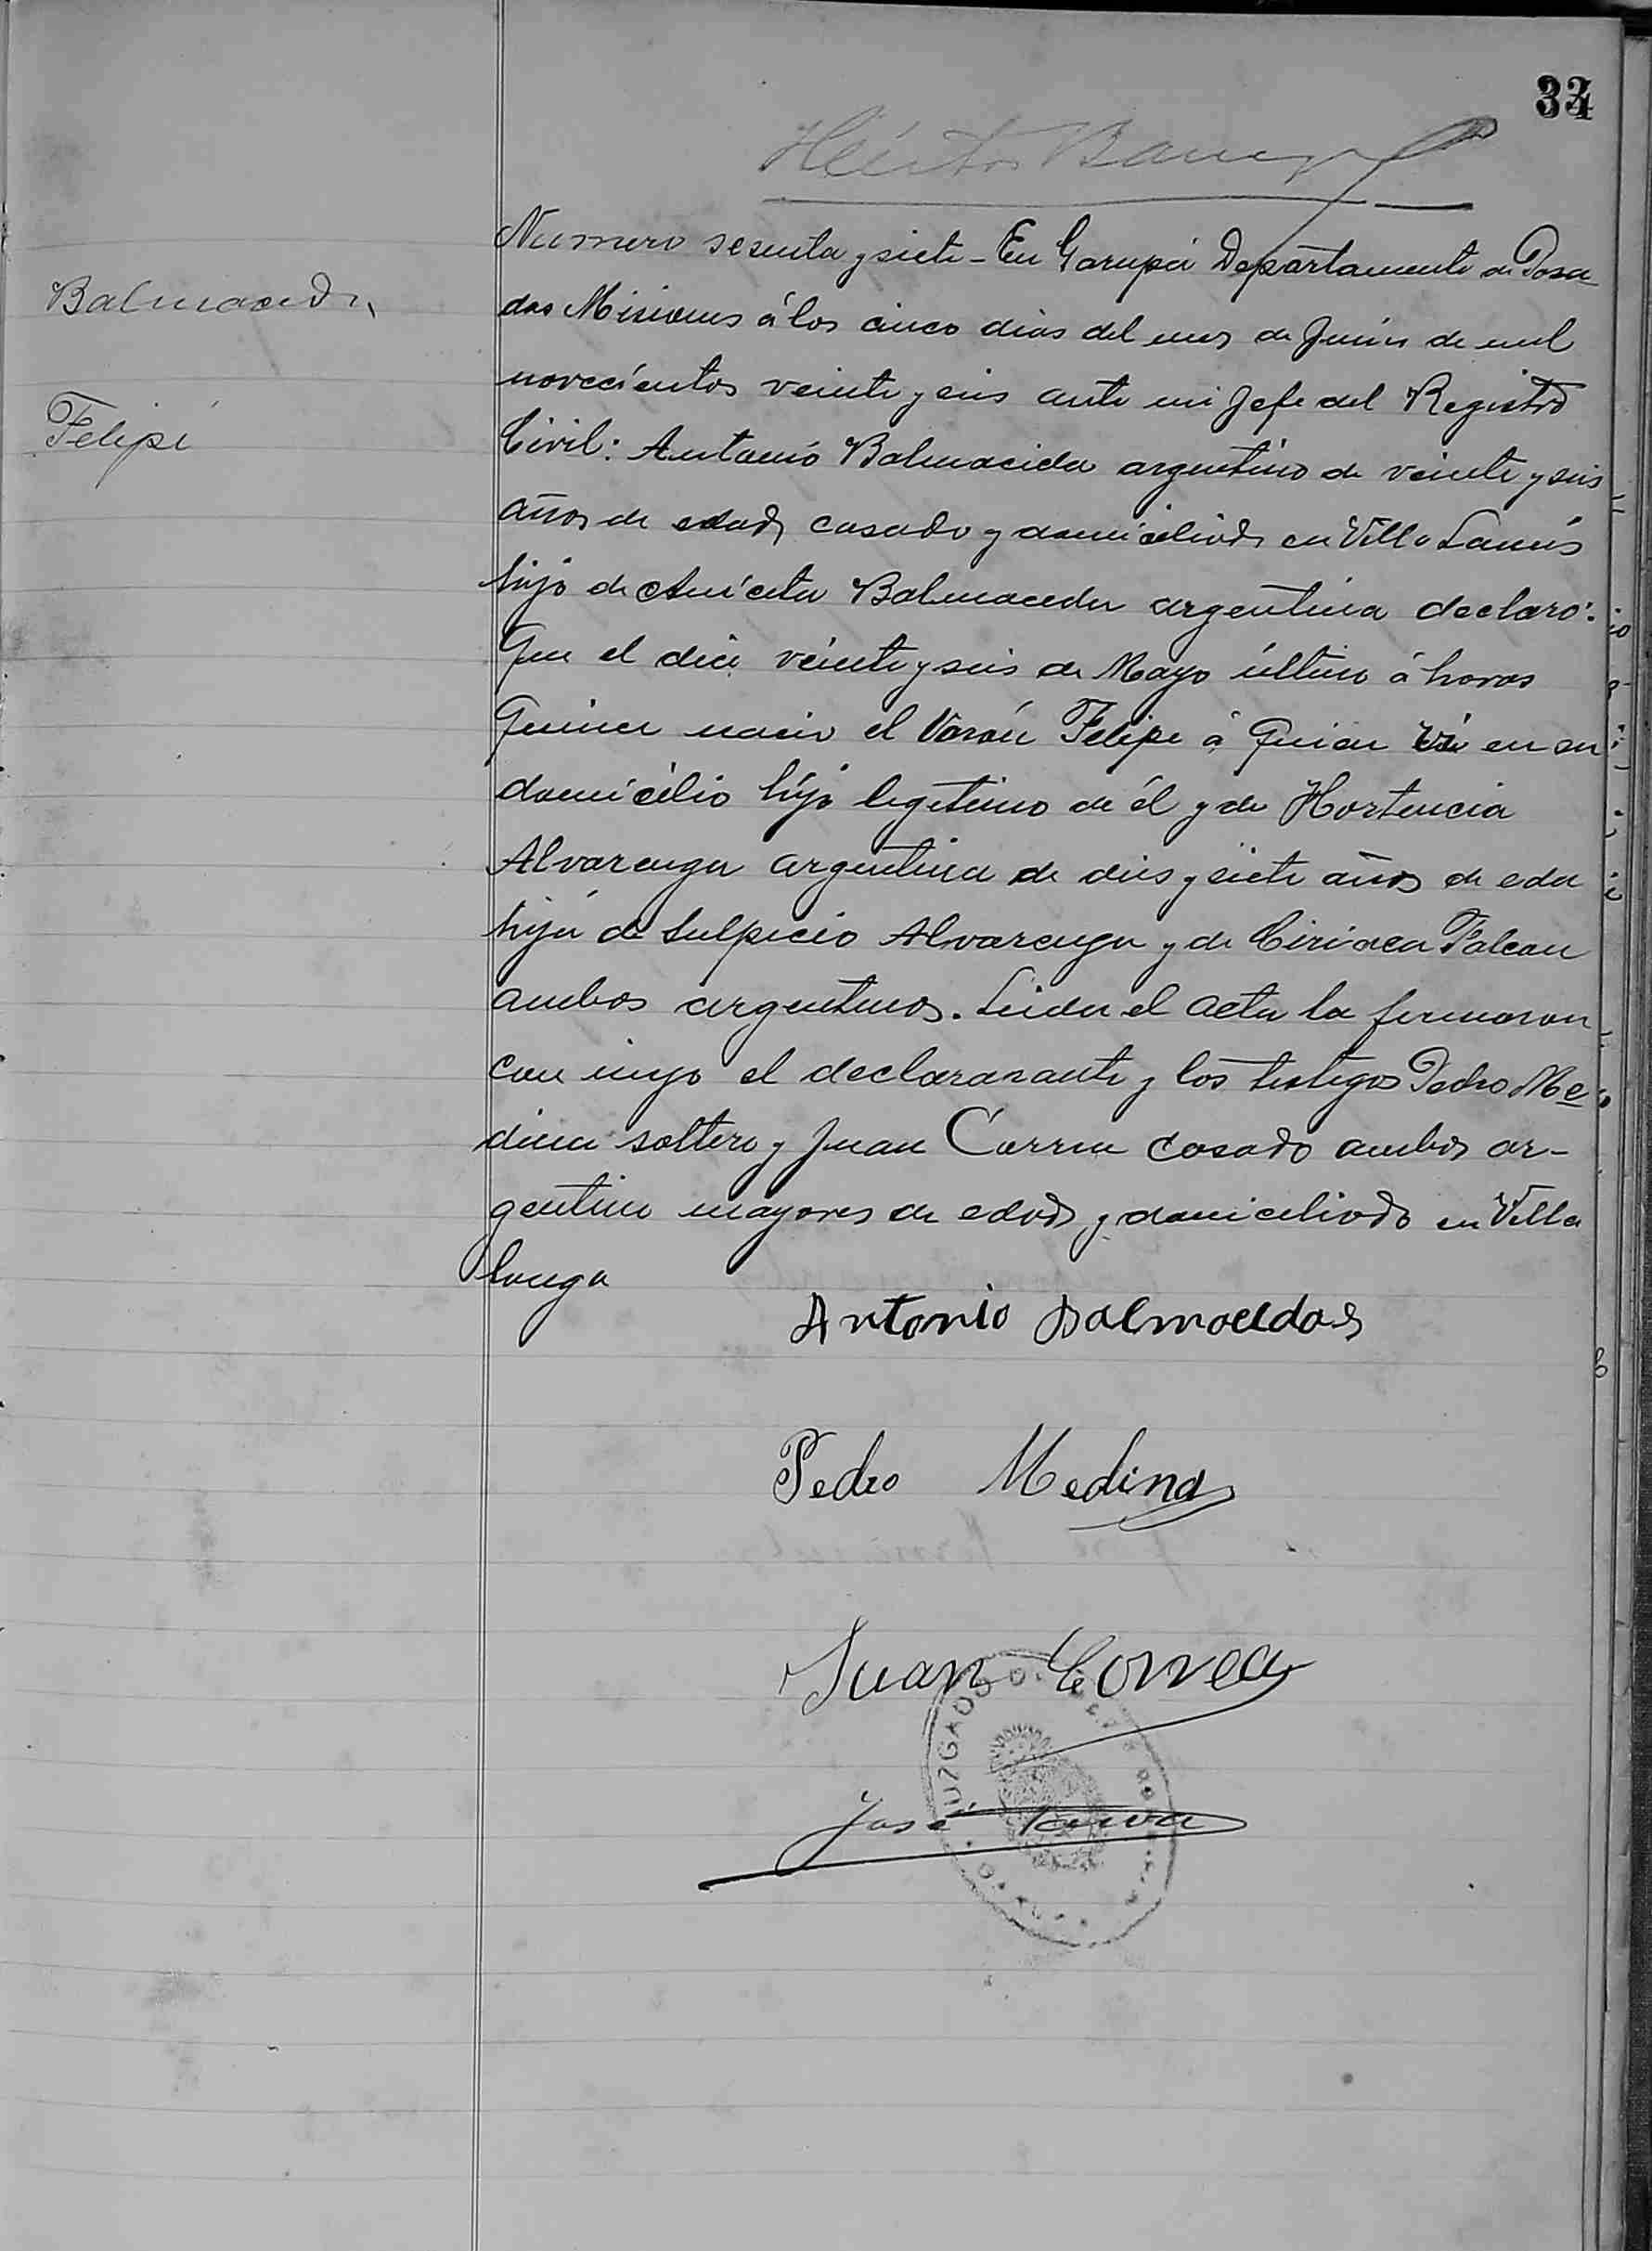 34
Balmaceda
Felipe
Numero sesenta y siete - En Garupá Departamento de Posa
das Misiones á los cinco dias del mes de Junio de mil
novecientos veinte y seis ante mi Jefe del Registro
Civil: Antonio Balmaceda argentino de veinte y seis
años de edad casado y domiciliado en Villa Lanús
hijo de Aniceta Balmaceda argentina declaró:
Que el dia veinte y seis de Mayo último á horas
Quince nacio el Varón Felipe á Quien vi en su
domicilio hijo legitimo de él y de Hortencia
Alvarenga argentina de dies y siete años de eda
hija de Sulpicio Alvarenga y de Ciriaca Falcon
ambos argentinos. Leida el acta la firmaron
con migo el declararante y los testigos Pedro Me
dina soltero y Juan Correa casado ambos ar-
gentino mayores de edad y domiciliado en Villa
longa
Antonio Balmaceda
Pedro Medina
Juan Correa
José
JUZGADO